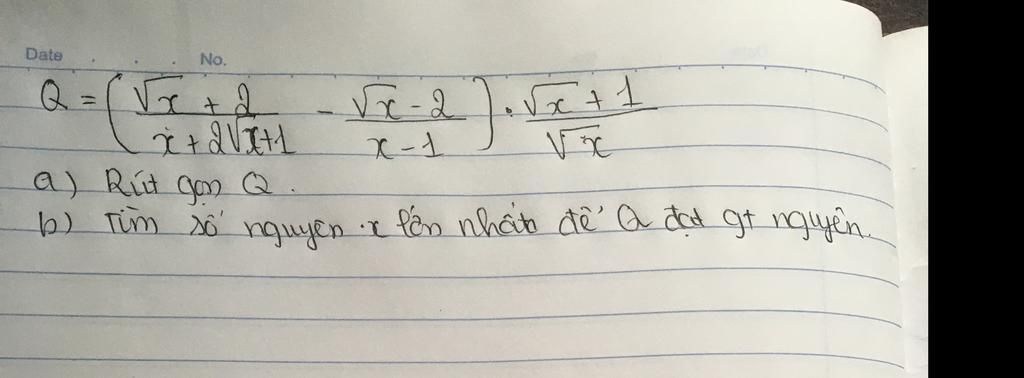 Date . . . No.
Q = (√x + 2 / x + 2√x + 1 - √x - 2 / x - 1) . √x + 1 / √x
a) Rút gọn Q.
b) Tìm số nguyên x lớn nhất để Q đạt gt nguyên.